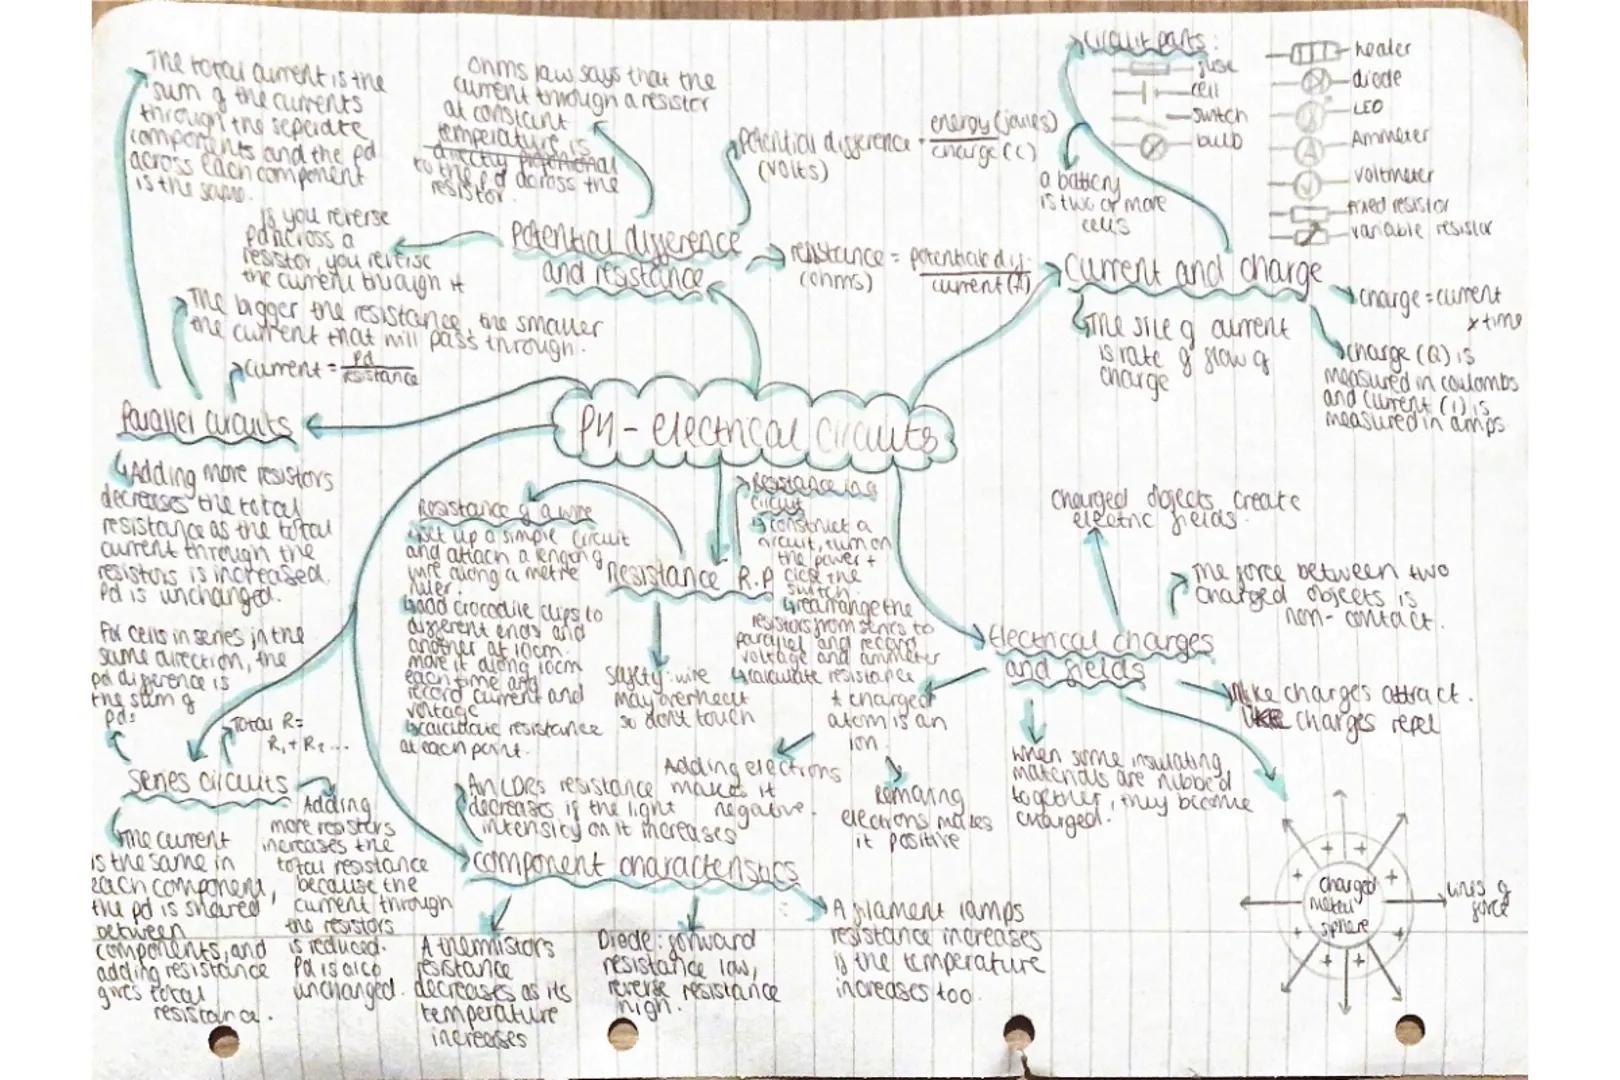 P4 - electrical circuits
Potential difference
and resistance
Ohms law says that the
current through a resistor
at constant
temperature is
directly proportional
to the pd across the
resistor.
potential difference = energy (joules)
(volts)
charge (C)
resistance = potential dif.
(ohms)
current (A)
if you reverse
pd across a
resistor, you reverse
the current through it
Current and charge
Circuit parts:
fuse
cell
switch
bulb
heater
diode
LED
Ammeter
voltmeter
fixed resistor
variable resistor
a battery
is two or more
cells
The size of current
is rate of flow of
charge
charge = current
x time
charge (Q) is
measured in coulombs
and current (I) is
measured in amps
Parallel circuits
The total current is the
sum of the currents
through the seperate
components and the pd
across each component
is the same.
The bigger the resistance, the smaller
the current that will pass through.
current = pd
resistance
Adding more resistors
decreases the total
resistance as the total
current through the
resistors is increased.
Pd is unchanged.
Series circuits
For cells in series in the
same direction, the
pd difference is
the sum of
pds
Total R =
R1 + R2 ...
The current
is the same in
each component,
the pd is shared
between
components, and
adding resistance
gives total
resistance.
Adding
more resistors
increases the
total resistance
because the
current through
the resistors
is reduced.
Pd is also
unchanged.
Resistance R.P
Resistance of a wire
set up a simple circuit
and attach a length of
wire along a metre
ruler.
add crocodile clips to
different ends and
another at 10cm.
move it along 10cm
each time and
record current and
voltage
calculate resistance
at each point.
Safety: wire
may overheat
so dont touch
Resistance in a
circuit
construct a
circuit, turn on
the power +
close the
switch.
rearrange the
resistors from series to
parallel and record
voltage and ammeter
calculate resistance
Electrical charges
and fields
Charged objects create
electric fields.
The force between two
charged objects is
non-contact.
Unlike charges attract.
Like charges repel
When some insulating
materials are rubbed
together, they become
charged.
charged
metal
sphere
lines of
force
A charged
atom is an
ion.
Adding electrons
makes it
negative.
Removing
electrons makes
it positive
Component characteristics
An LDRs resistance
decreases if the light
intensity on it increases
A thermistors
resistance
decreases as its
temperature
increases
Diode: forward
resistance low,
reverse resistance
high.
A filament lamps
resistance increases
if the temperature
increases too.